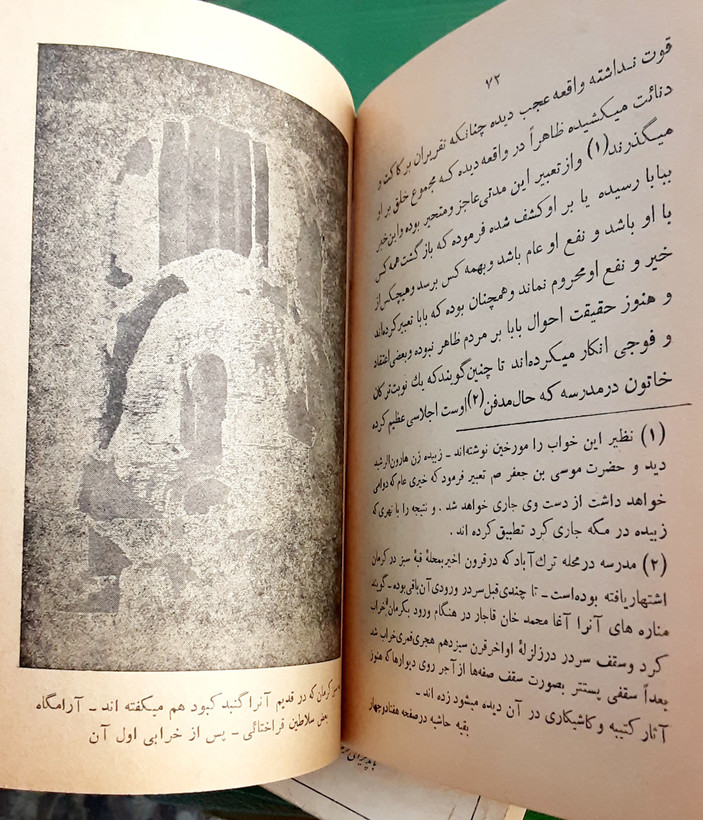 ۷۲
قوت نداشته واقعه عجب دیده چنانکه تقریر آن بر کاکت و
دنائت میکشیده ظاهراً در واقعه دیده که مجموع خلق بر او
میگذرند (۱) و از تعبیر این مدتی عاجز و متحیر بوده و این خبر
ببابا رسیده یا بر او کشف شده فرموده که بازگشت همه کس
با او باشد و نفع او عام باشد و بهمه کس برسد و هیچکس از
خیر و نفع او محروم نماند و همچنان بوده که بابا تعبیر کرده‌اند
و هنوز حقیقت احوال بابا بر مردم ظاهر نبوده و بعضی اعتقاد
و فوجی انکار میکرده‌اند تا چنین گویند که یك نوبت ترکان
خاتون در مدرسه که حال مدفن (۲) اوست اجلاسی عظیم کرده
(۱) نظیر این خواب را مورخین نوشته‌اند ـ زبیده زن هارون الرشید
دید و حضرت موسی بن جعفر صم تعبیر فرمود که خیری عام که دوامی
خواهد داشت از دست وی جاری خواهد شد . و نتیجه را با نهری که
زبیده در مکه جاری کرد تطبیق کرده اند .
(۲) مدرسه در محله ترك آباد که در قرون اخیر بمحلهٔ قبهٔ سبز در کرمان
اشتهار یافته بوده است ـ تا چندی قبل سر در ورودی آن باقی بوده ـ گویند
مناره های آنرا آغا محمد خان قاجار در هنگام ورود بکرمان خراب
کرد و سقف سردر در زلزلهٔ اواخر قرن سیزدهم هجری قمری خراب شد
بعداً سقفی پستتر بصورت سقف صفه‌ها از آجر روی دیوارها که هنوز
آثار کتیبه و کاشیکاری در آن دیده میشود زده اند ـ
بقیه حاشیه در صفحه هفتاد و چهار
کرمان که در قدیم آنرا گنبد کبود هم میگفته اند ـ آرامگاه
بعض سلاطین قراختائی ـ پس از خرابی اول آن